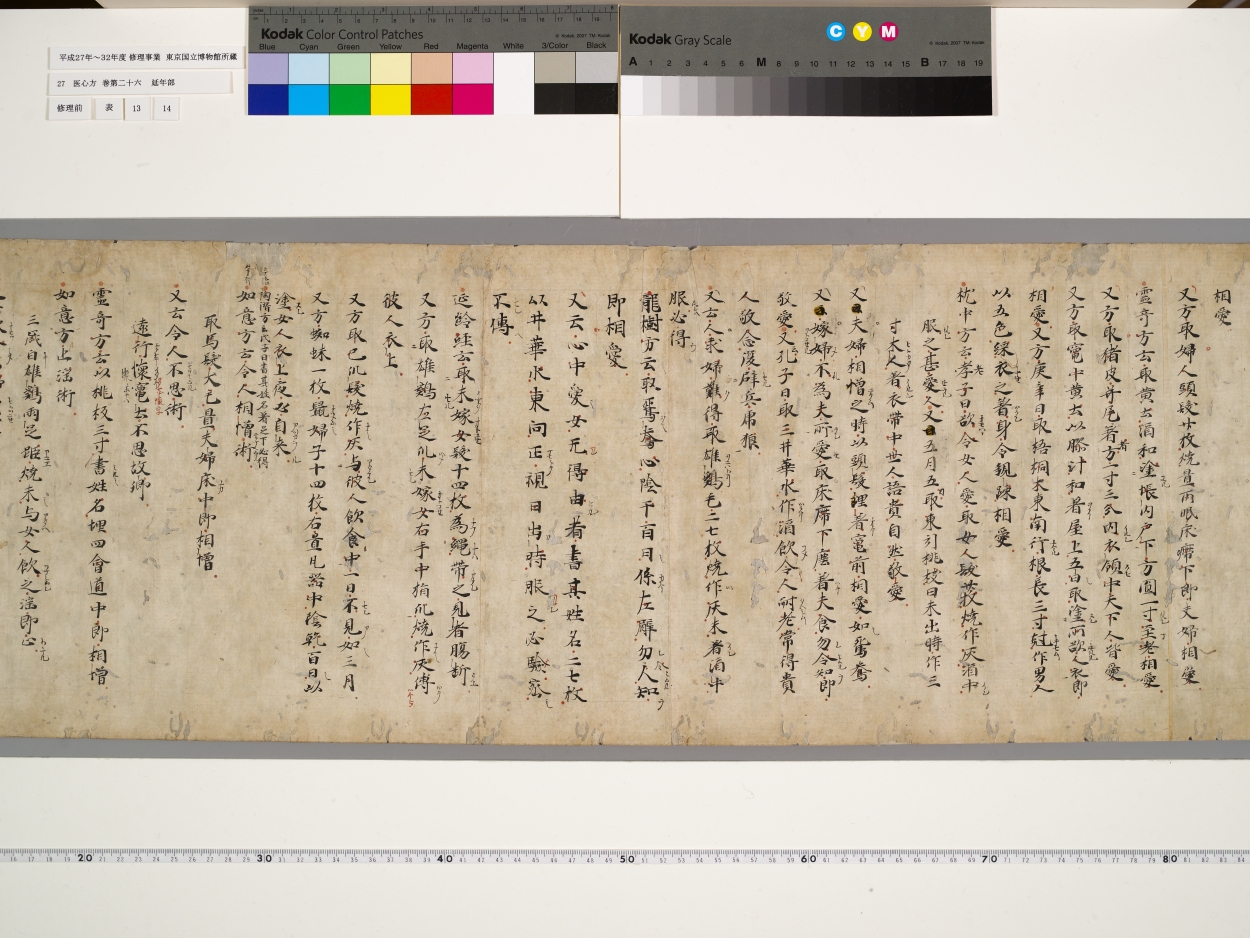 平成27年～32年度 修理事業 東京国立博物館所蔵
27 医心方 巻第二十六 延年部
修理前 表 13 14
Kodak Color Control Patches
© Kodak, 2007 TM: Kodak
Blue Cyan Green Yellow Red Magenta White 3/Color Black
Kodak Gray Scale
C Y M
© Kodak, 2007 TM: Kodak
A 1 2 3 4 5 6 M 8 9 10 11 12 13 14 15 B 17 18 19
相愛
又方取婦人頭髮廿枚燒置所眠床席下即夫婦相愛
靈奇方云取黃土酒和塗帳內戶下方圓一寸至老相愛
又方取猪皮并尾者方一寸三分內衣領中天下人皆愛
又方取竈中黃土以膠汁和着屋上五日取塗所欲人衣即
相愛又方庚辛日取梧桐木東南行根長三寸尅作男人
以五色綵衣之着身令親踈相愛
枕中方云老子曰欲令女人愛取女人髮廿枚燒作灰酒中
服之甚愛人又五月五取東引桃枝日未出時作三
寸木人着衣帶中世人語貴自然敬愛
又夫婦相憎之時以頭髮埋着竈前相愛如鴛鴦
又嫁婦不為夫所愛取床席下塵着夫食勿令知即
敬愛又孔子曰取三井華水作酒飲令人耐老常得貴
人敬念復辟兵虎狼
又云人求婦難得取雄鷄毛二七枚燒作灰末着酒中
服必得
龍樹方云取鴛鴦心陰干百日係左臂勿人知
即相愛
又云心中愛女无得由者書其姓名二七枚
以井華水東向正視日出時服之必驗密
不傳
延齡經云取未嫁女髮十四枚為繩帶之見者腸斷
又方取雄鷄左足爪未嫁女右手中指爪燒作灰傅
彼人衣上
又方取己爪髮燒作灰与彼人飲食中一日不見如三月
又方蜘蛛一枚鼠婦子十四枚右置瓦器中陰乾百日以
塗女人衣上夜必自来
如意方云令人相憎術
取馬髮犬毛置夫婦床中即相憎
又云令人不思術
遠行懷竈土不思故鄉
靈奇方云以桃枝三寸書姓名埋四會道中即相憎
如意方止淫術
三歲白雄鷄兩足距燒末与女人飲之淫即止
20 30 40 50 60 70 80